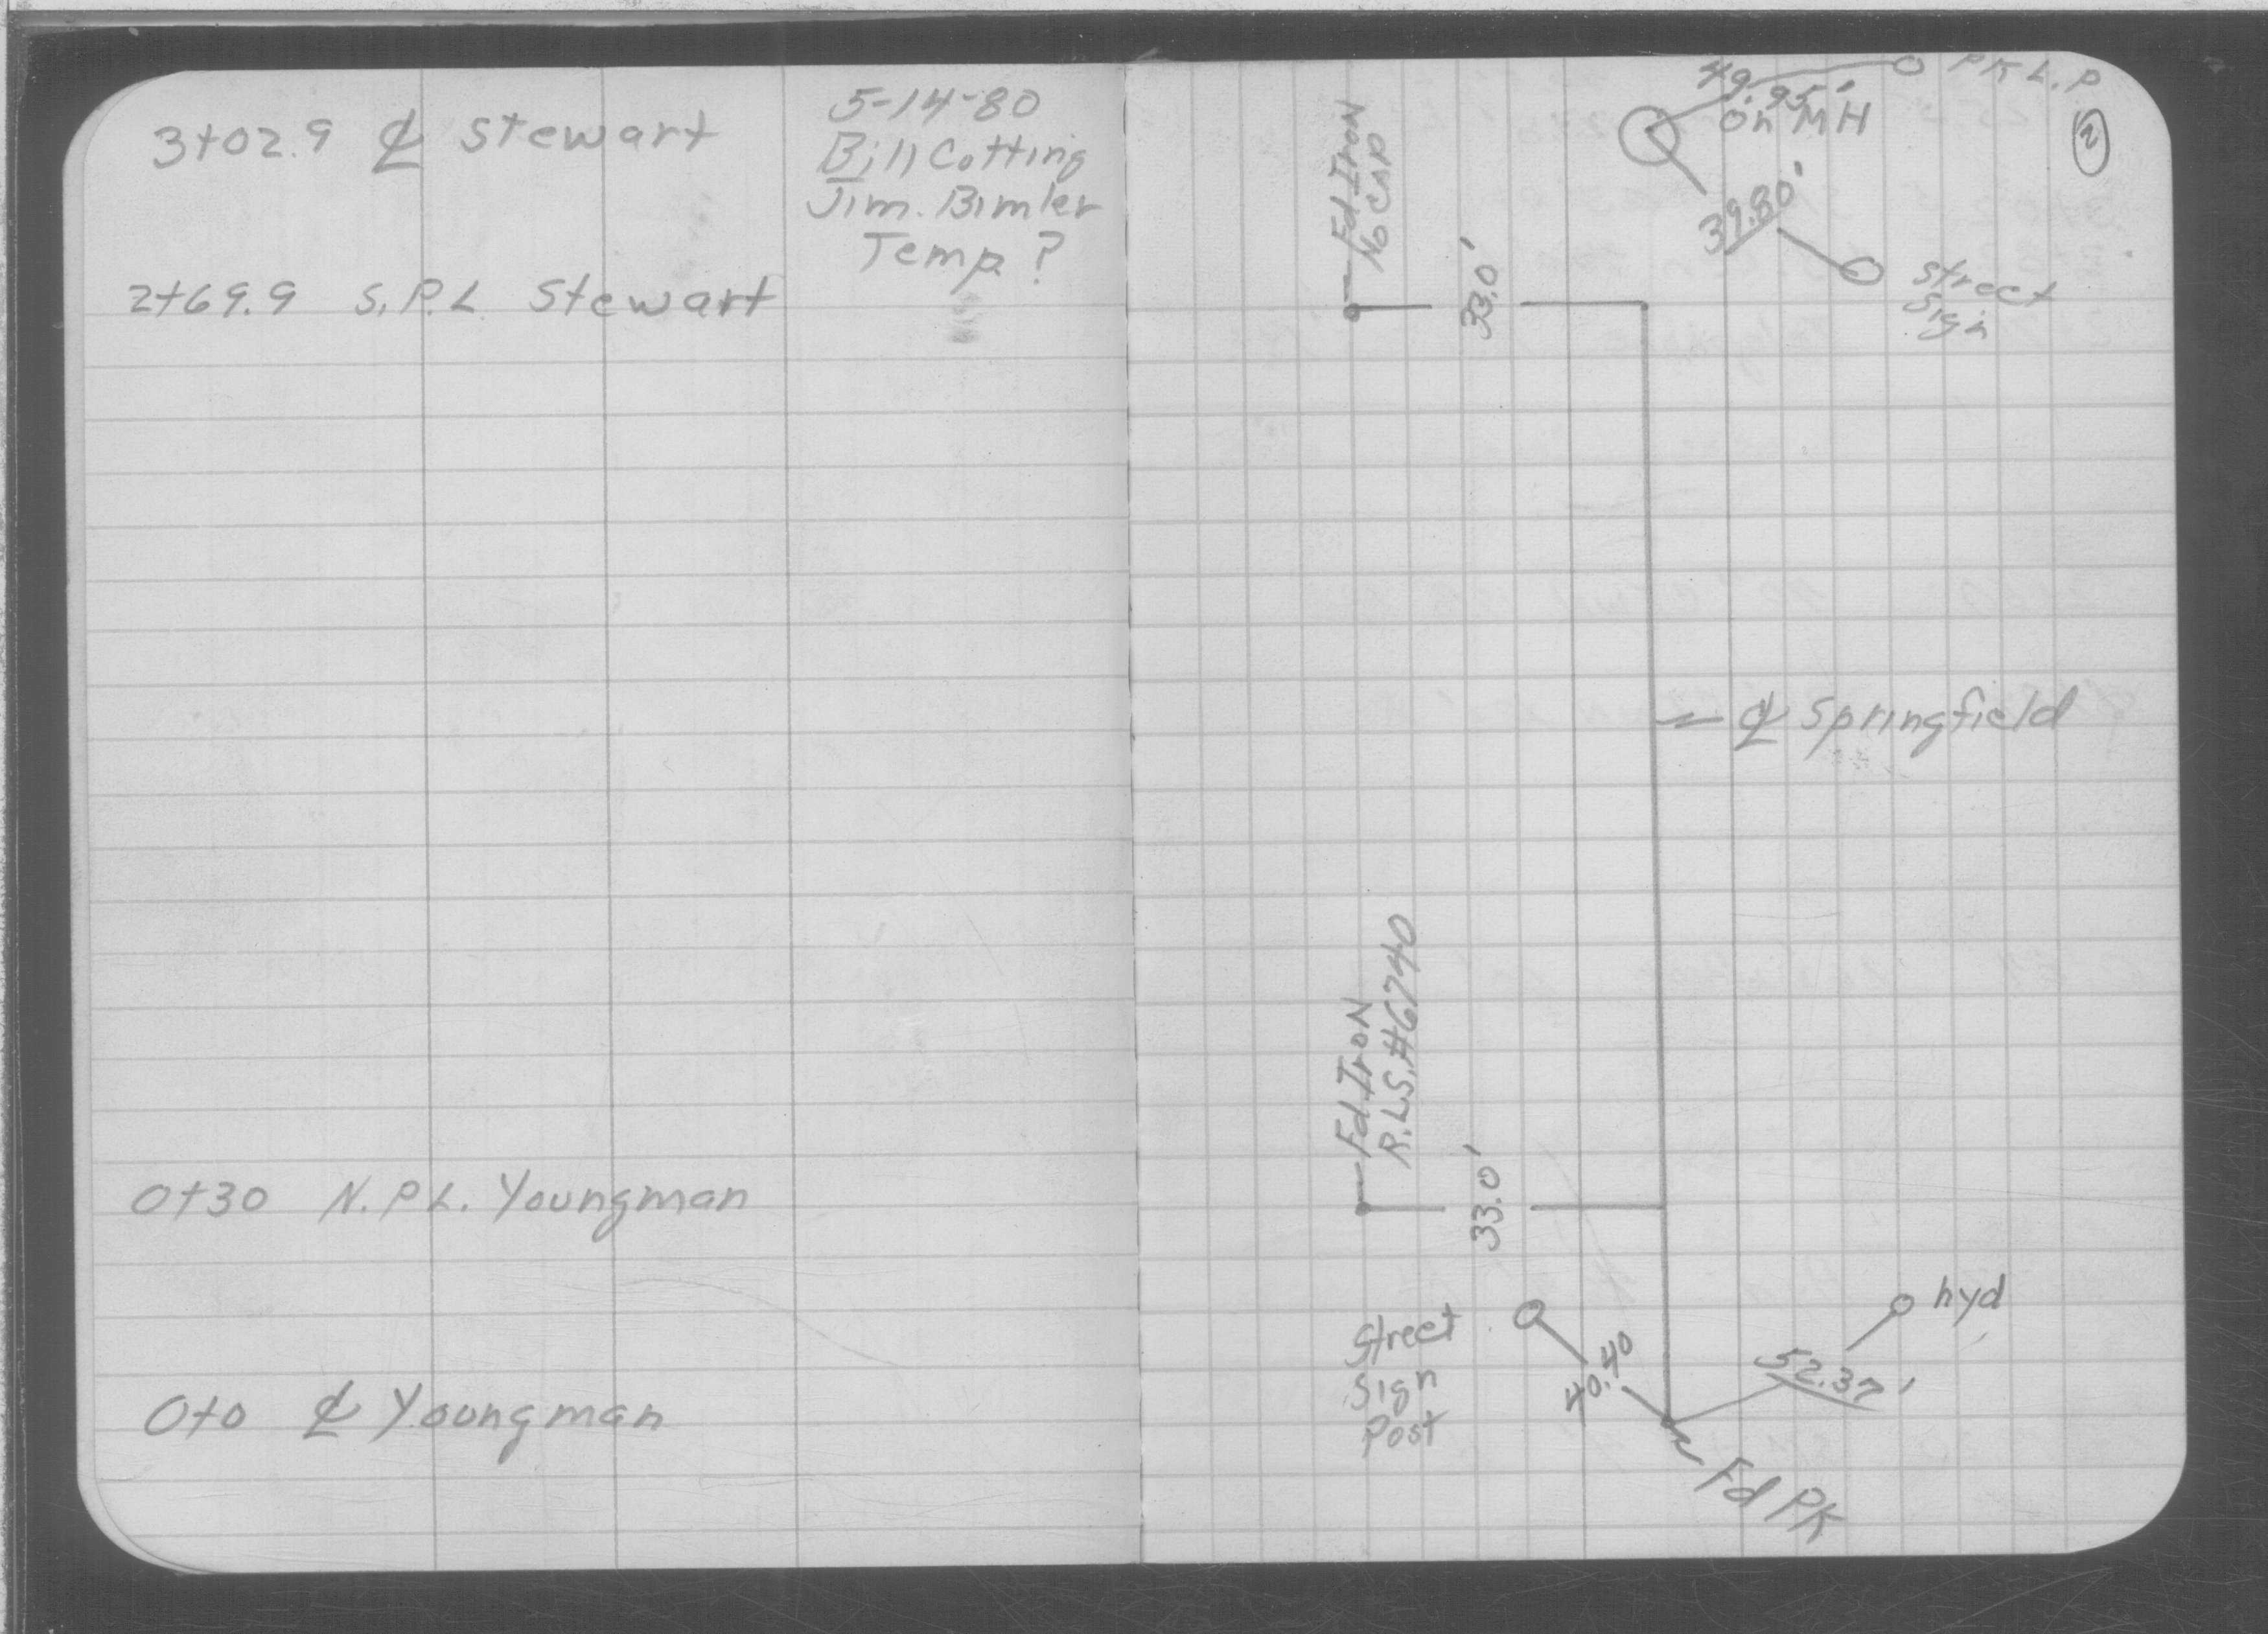 3+02.9 ℄ Stewart
5-14-80
Bill Cotting
Jim. Bimler
Temp ?
2+69.9 S.P.L Stewart
0+30 N.P.L. Youngman
0+0 ℄ Youngman
2
PK L.P
49.95'
on MH
39.80'
Street
Sign
Fd Iron
No CAP
33.0'
℄ Springfield
Fd Iron
R.L.S. #6740
33.0'
Street
Sign
Post
40.40
hyd
52.37'
Fd PK